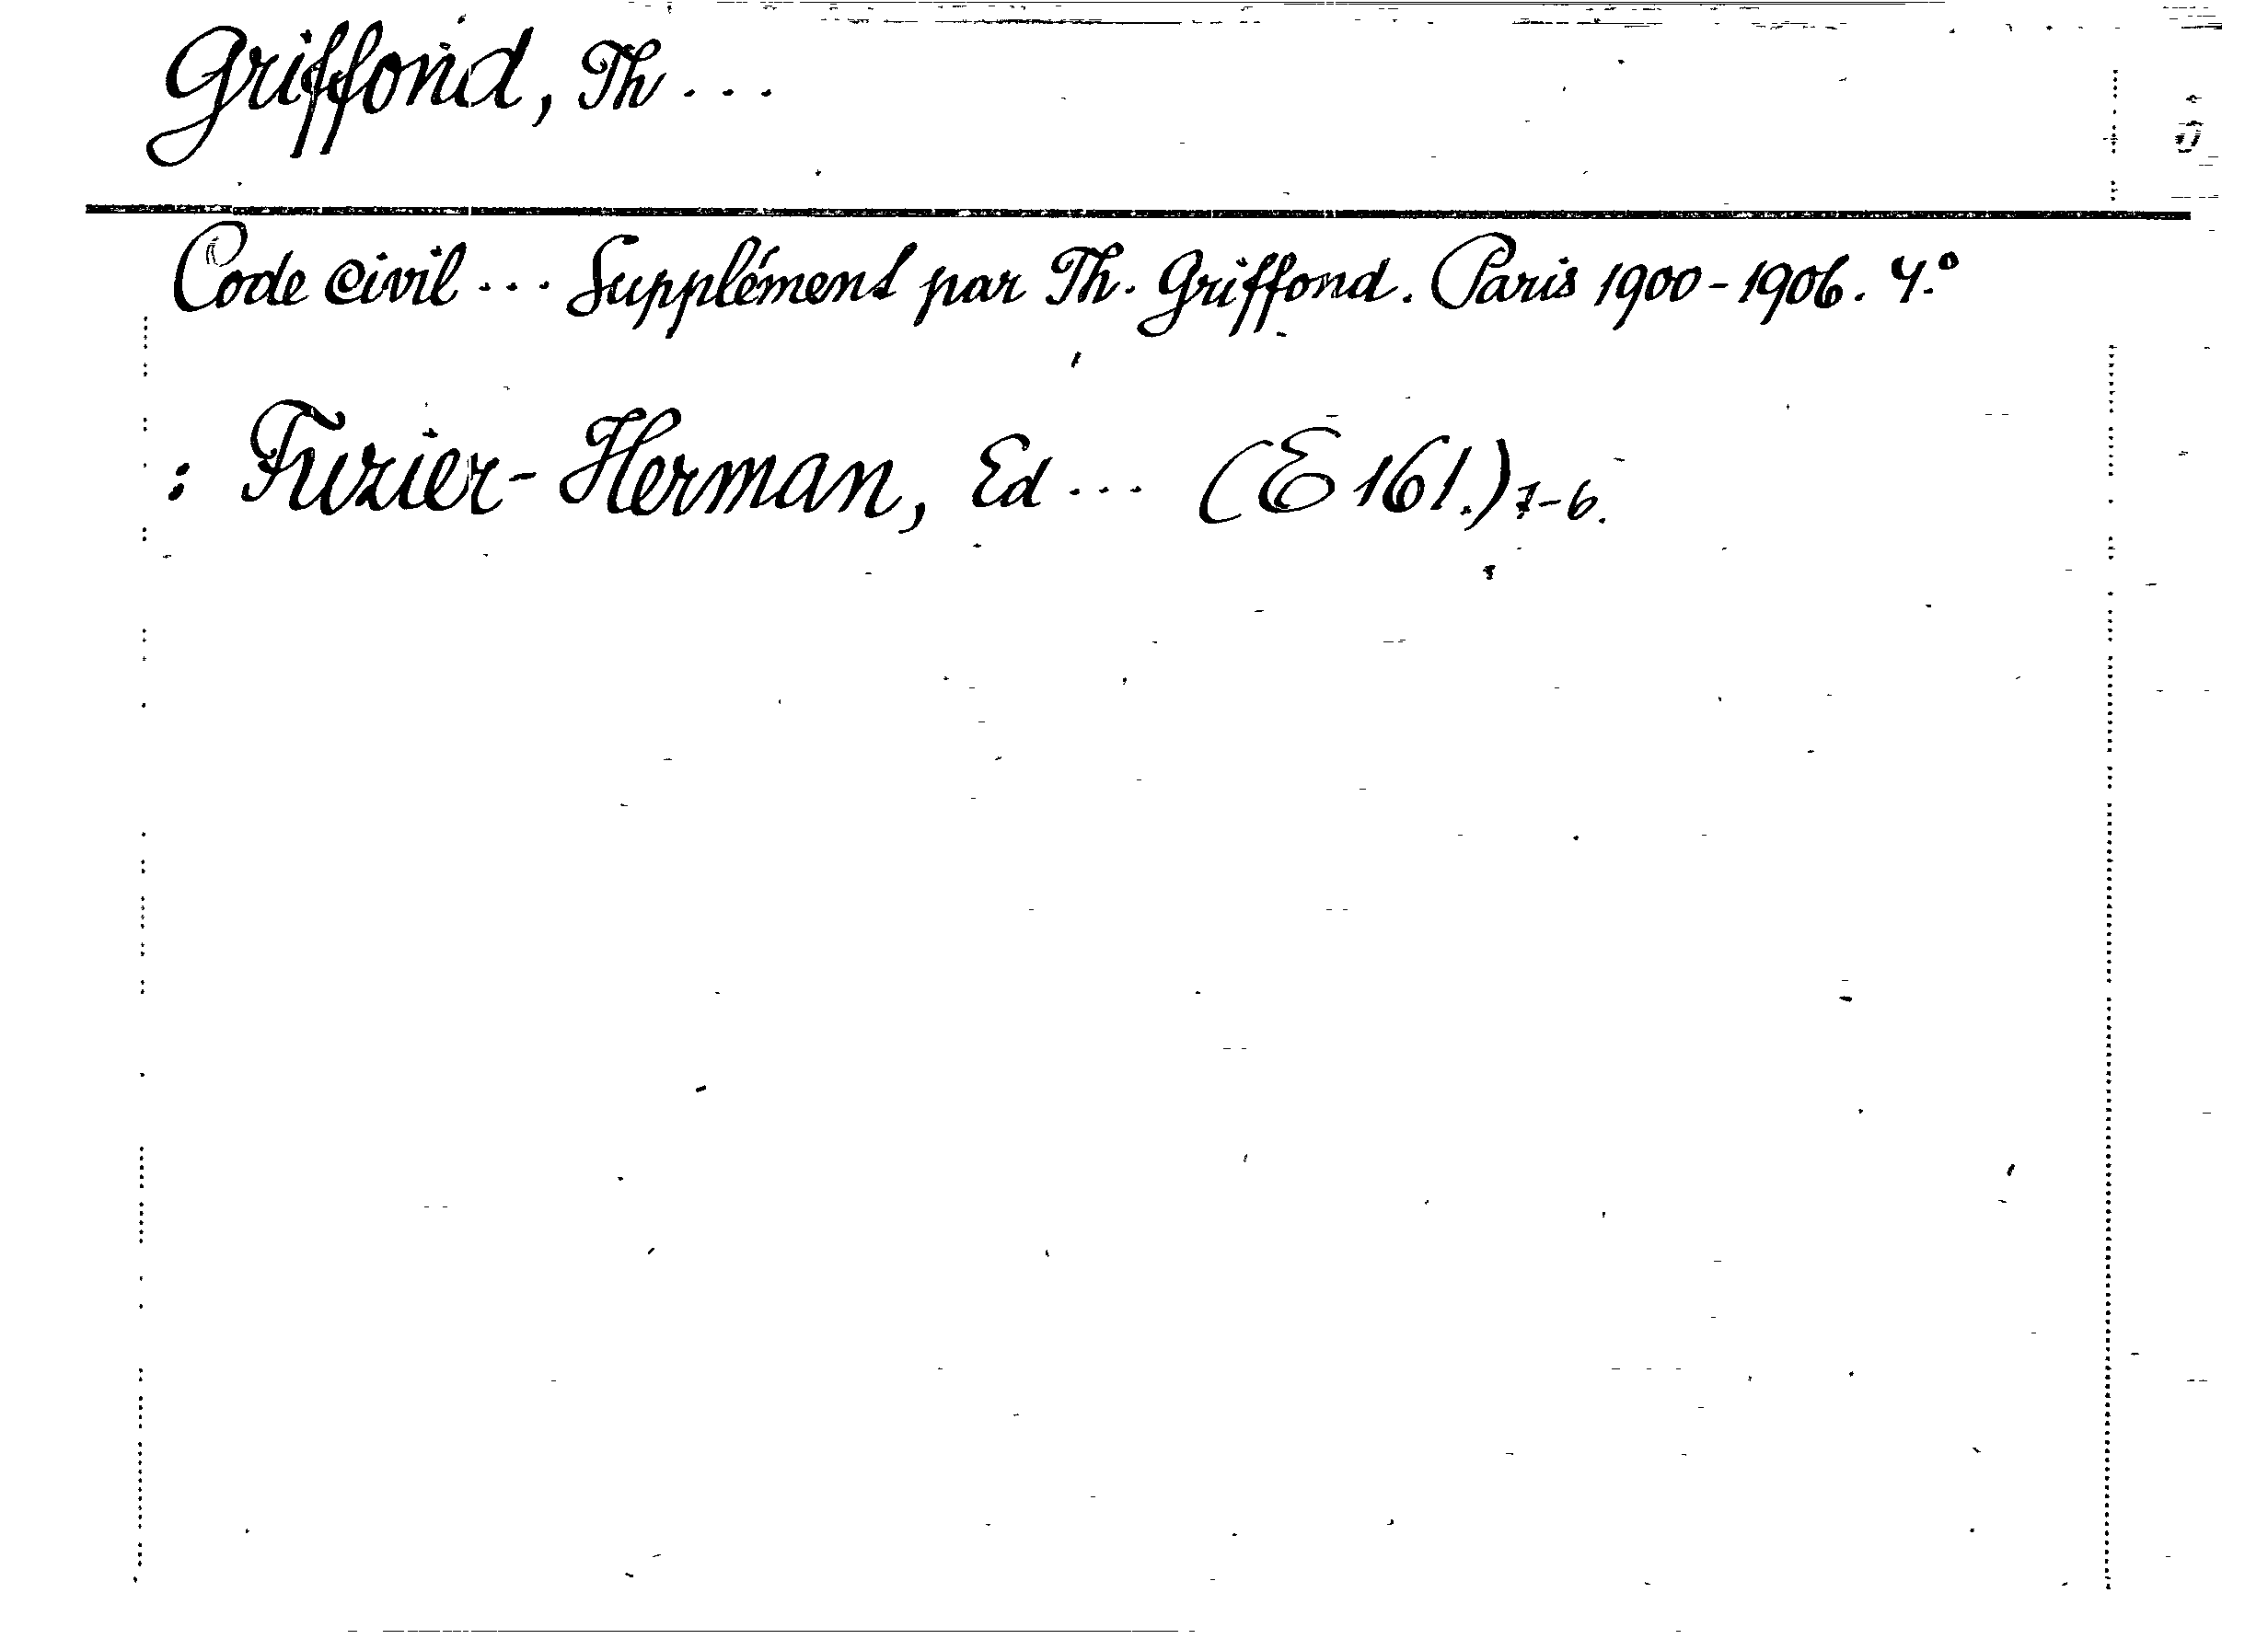 Griffond, Th...
Code civil... Supplément par Th. Griffond. Paris 1900-1906. 4.°
: Fuzier-Herman, Ed... (E 161.) 7-6.